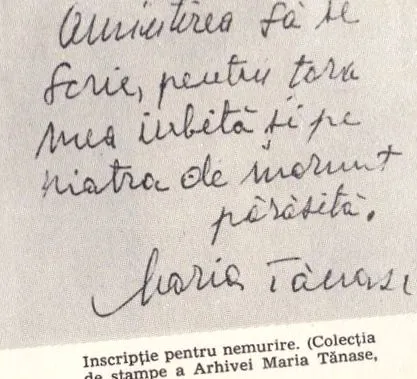 Amintirea să se
scrie, pentru țara
mea iubită și pe
piatra de mormânt
părăsită.
Maria Tănase
Inscripție pentru nemurire. (Colecția
de stampe a Arhivei Maria Tănase,